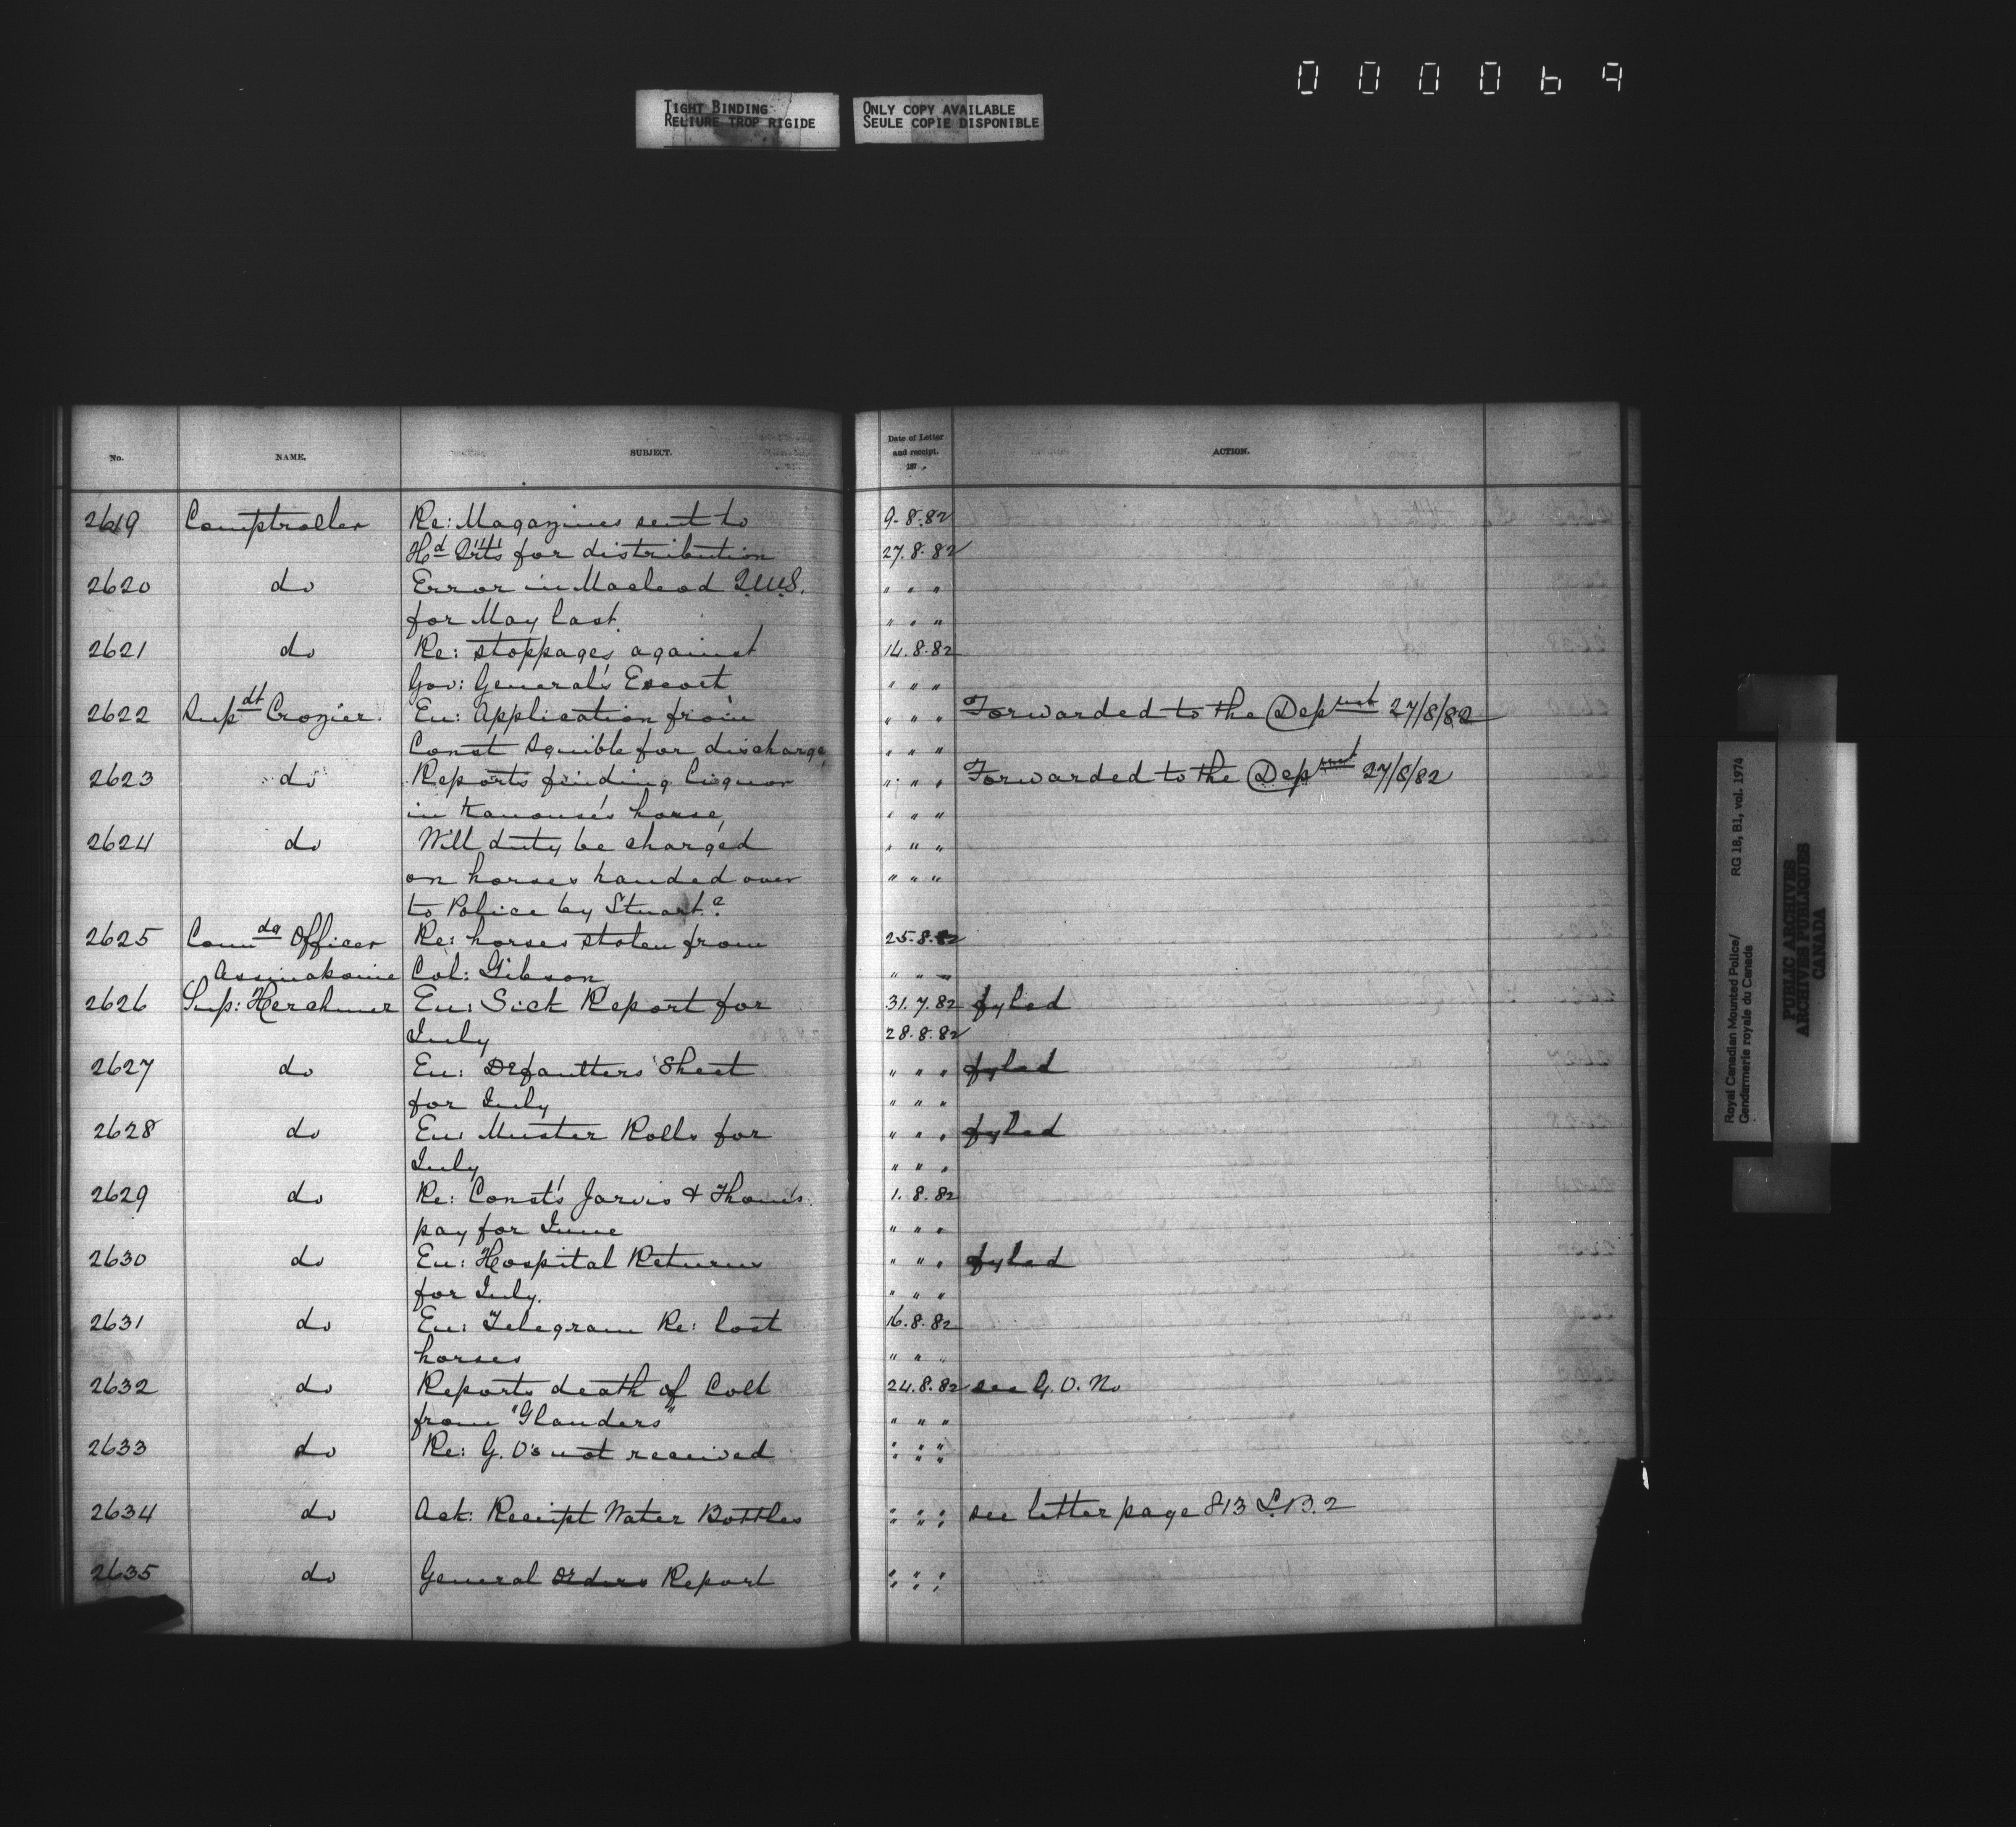 000069
TIGHT BINDING
RELIURE TROP RIGIDE
ONLY COPY AVAILABLE
SEULE COPIE DISPONIBLE
No. NAME. SUBJECT. Date of Letter and receipt. 187 . ACTION.
2619 Comptroller Re: Magazines sent to 9.8.82
Hd Qrts for distribution 27.8.82
2620 do Error in Macleod Q.M.S. " " "
for May last. " " "
2621 do Re: stoppages against 14.8.82
Gov: General's Escort " " "
2622 Supdt Crozier. En: Application from " " " Forwarded to the Depment 27/8/82
Const Squible for discharge, " " "
2623 do Reports finding liquor " " " Forwarded to the Depment 27/8/82
in Kanouse's house, " " "
2624 do Will duty be charged " " "
on horses handed over " " "
to Police by Stuart?
2625 Comdg Officer Re: horses stolen from 25.8.82
Assinaboine Col: Gibson " " "
2626 Sup: Herchmer En: Sick Report for 31.7.82 fyled
July 28.8.82
2627 do En: Defaulters Sheet " " " fyled
for July " " "
2628 do En: Muster Rolls for " " " fyled
July " " "
2629 do Re: Const's Jarvis & Thom's 1.8.82
pay for June " " "
2630 do En: Hospital Returns " " " fyled
for July. " " "
2631 do En: Telegram Re: lost 16.8.82
horses " " "
2632 do Reports death of Colt 24.8.82 see G.O. No
from "Glanders" " " "
2633 do Re: G.O's not received " " "
" " "
2634 do Ack: Receipt Water Bottles " " " see letter page 813 L.B.2
" " "
2635 do General Orders Report " " "
" " "
Royal Canadian Mounted Police/
Gendarmerie royale du Canada
RG 18, B1, vol. 1974
PUBLIC ARCHIVES
ARCHIVES PUBLIQUES
CANADA